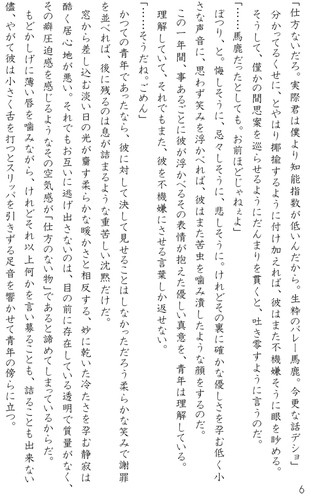 「仕方ないだろ。実際君は僕より知能指数が低いんだから。生粋のバレー馬鹿。今更な話デショ」
分かってるくせに、とやはり揶揄するように付け加えれば、彼はまた不機嫌そうに眼を眇める。
そうして、僅かの間思案を巡らせるようにだんまりを貫くと、吐き零すように言うのだ。
「……馬鹿だったとしても。お前ほどじゃねぇよ」
ぽつり、と。悔しそうに、忌々しそうに、悲しそうに。けれどその裏に確かな優しさを孕む低く小
さな声音に、思わず笑みを浮かべれば、彼はまた苦虫を噛み潰したような顔をするのだ。
この一年間、事あるごとに彼が浮かべるその表情が抱えた優しい真意を、青年は理解している。
理解していて、それでもまた、彼を不機嫌にさせる言葉しか返せない。
「……そうだね。ごめん」
かつての青年であったなら、彼に対して決して見せることはしなかっただろう柔らかな笑みで謝罪
を並べれば、後に残るのは息が詰まるような重苦しい沈黙だけだ。
窓から差し込む淡い日の光が齎す柔らかな暖かさと相反する、妙に乾いた冷たさを孕む静寂は
酷く居心地が悪い。それでもお互いに逃げ出さないのは、目の前に存在している透明で質量がなく、
その癖圧迫感を感じるようなその空気感が「仕方のない物」であると諦めてしまっているからだ。
もどかしげに薄い唇を噛みながら、けれどそれ以上何かを言い募ることも、詰ることも出来ない
儘、やがて彼は小さく舌を打つとスリッパを引きずる足音を響かせて青年の傍らに立つ。
6